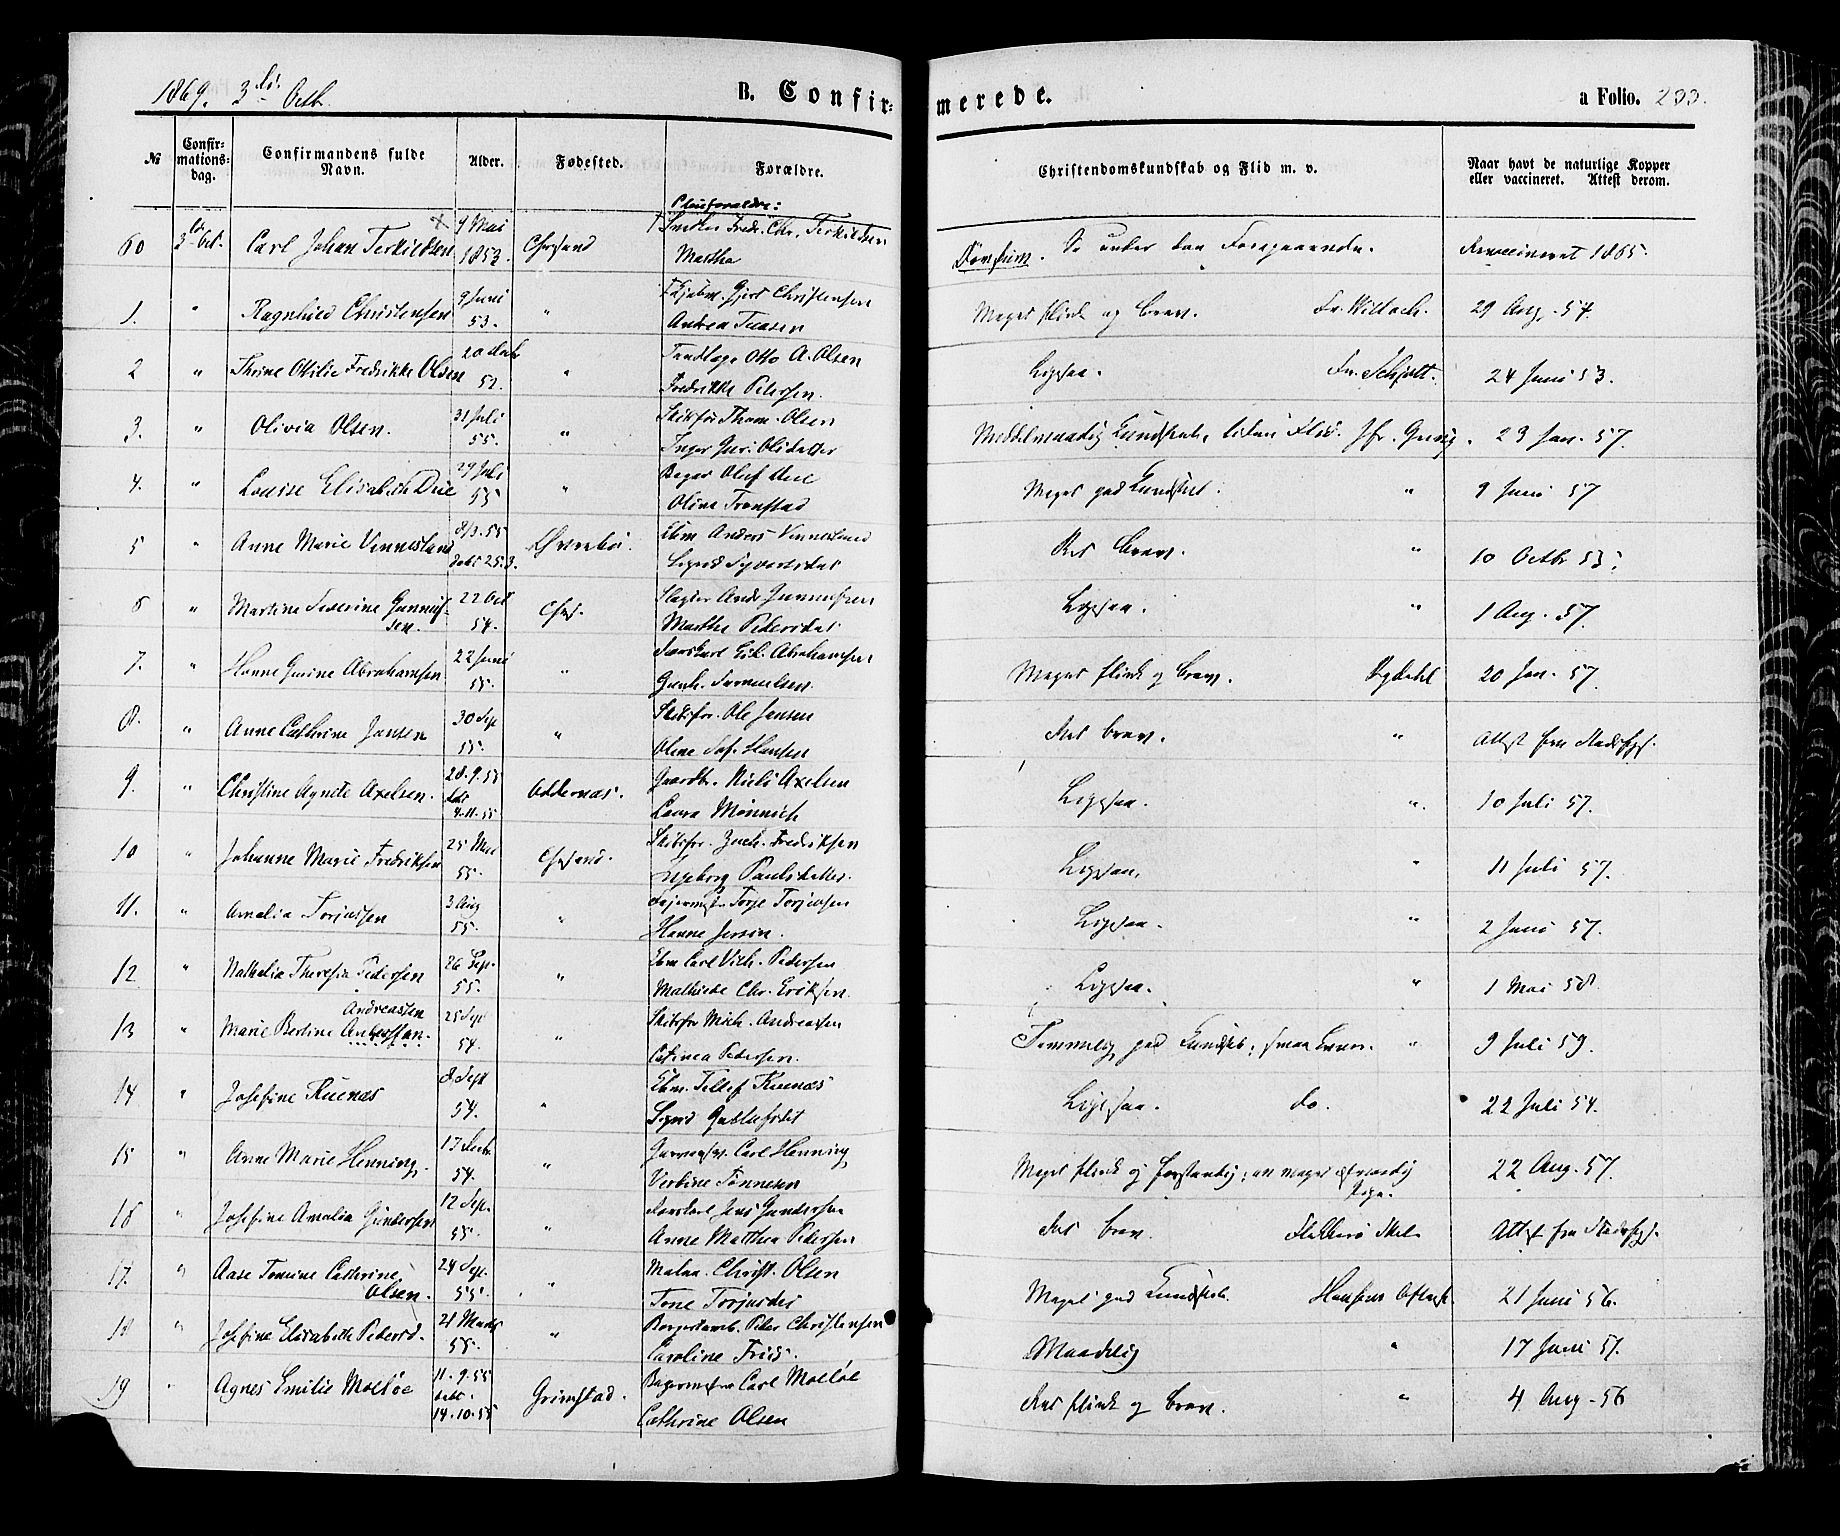 1869. 3die Octb.
B. Confirmerede.
a Folio. 233.
№ Confirmationsdag. Confirmandens fulde Navn. Alder. Fødested. Forældre. Christendomskundskab og Flid m. v. Naar havt de naturlige Kopper eller vaccineret. Attest derom.
Pleieforældre:
60 3die Oct. Carl Johan Terkildsen 9 Mai 1853. Chrsand Snedker Fredr. Chr. Terkildsen
Martha Revaccineret 1865.
1. " Ragnhild Christensen 9 Juni 53. " Gjert Christensen
Andrea Tuasen Meget flink og brav. Fr. Wittoch. 29 Aug. 57.
2 " Thrine Otilie Fredrikke Olsen 20 52. " Otto A. Olsen
Fredrikke Petersen. Ligesaa. 24 Juni 53.
3. " Olivia Olsen. 31 Juli 55. " Thom. Olsen
Inger Olsdatter Middelmaadig Kundskab, liden Flid. 23 Jan. 57.
4. " Louise Elisabeth Due 29 Juli 55 " Bager Oluf Due
Olina Tronstad Meget god Kundskab. " 9 Juni 57
5 " Anne Marie Vennesland 8/3. 55 døbt 25.3. Øvrebø. Ebm Anders Vennesland
Sigrid Syvertsdat Ret brav. " 10 Octbr 53.
6 " Martine Severine Gunnufsen. 22 Oct 54. Chrs. Slagter Ands Gunnufsen
Marthe Pedersdat Ligesaa. " 1 Aug. 57.
7. " Hanne Gurine Abrahamsen 22 Juni 55. " Abrahamsen
Gunh. Samuelsen. Meget flink og brav. Rydahl 20 Jan. 57.
8. " Anne Cathrine Jansen 30 Sep 55. " Skibsfør. Ole Jansen
Oline Jos. Hansen Ret brav. " Attest fra
9. " Christine Agnete Axelsen. 28.9.55 døbt 4.11.55 Oddernæs. Gaardbr. Niels Axelsen
Laura Mönnich Ligesaa. " 10 Juli 57.
10 " Johanne Marie Fredriksen 25 Mai 55. Chrsand. Skibsfør. Zach. Fredriksen
Ingeborg Paulsdatter. Ligesaa. " 11 Juli 57.
11. " Amalia Torjussen 3 Aug 55. " Torje Torjussen
Hanne Jensen. Ligesaa. " 2 Juni 57.
12 " Nathalia Theresia Pedersen 26 Sep. 55. " Ebm Carl Vilh. Pedersen
Mathilde Chr. Eriksen. Ligesaa. " 1 Mai 58.
13 " Marie Bertine Andreassen 25 Sept 54. " Skibsfør Mich. Andreassen
Catinca Pedersen. Temmelig god Kundskb; smaa Evner. " 9 Juli 59.
14 " Josefine Ruenæs 8 Sept 54. " Ebm. Tellef Ruenæs
Sigrid Ligesaa. do. 22 Juli 54.
15 " Anne Marie Henning. 17 Decbr. 54. " Carl Henning
Verbine Tönnesen Meget flink og forstandig; en meget elskværdig Pige. 22 Aug. 57.
16 " Josefine Amalia Gundersen 12 Sep. 55. " Jens Gundersen
Anne Mathea Pedersen Ret brav. Attest fra
17. " Aase Tomine Cathrine Olsen. 24 Sep. 55. " Christ. Olsen
Tone Torjusdat Meget god Kundskab. 21 Juni 56.
18 " Josefine Elisabeth Pedersd. 21 Marts 55. " Peder Christensen
Caroline Friis. Maadelig " 17 Juni 57.
19 " Agnes Emilie Molløe 11.9.55 døbt. 14.10.55 Grimstad. Carl Molløe
Cathrine Olsen Ret flink og brav. " 4 Aug. 56